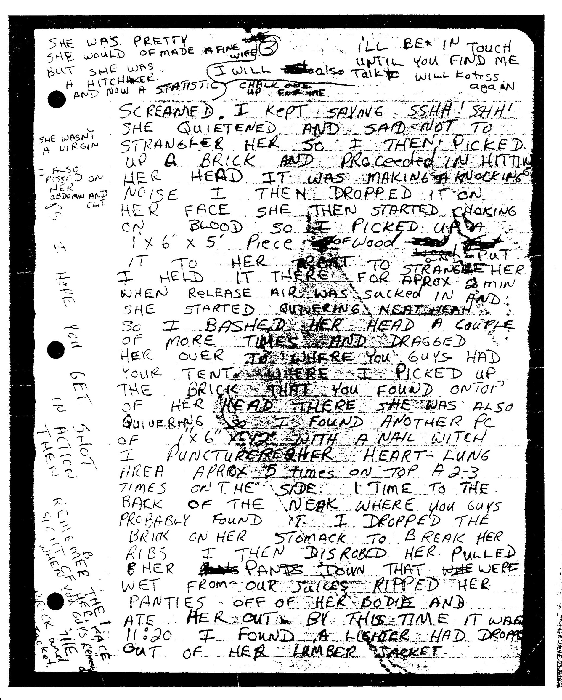 SHE WAS PRETTY
SHE WOULD OF MADE A FINE WIFE
BUT SHE WAS
A HITCHHIKER
AND NOW A STATISTIC
I WILL also
CHALK ONE
UP FOR ME
I'LL BE IN TOUCH
UNTIL YOU FIND ME
TALK WILL
again
SHE WASN'T
A VIRGIN
ALSO
PISSED ON
HER
ABDOMIN AND
SCREAMED. I KEPT SAYING SSHH! SHH!
SHE QUIETENED AND SAID NOT TO
STRANGLER HER SO I THEN PICKED
UP A BRICK AND PROCEEDED IN HITTIN
HER HEAD IT WAS MAKING A KNOCKING
NOISE I THEN DROPPED IT ON
HER FACE SHE THEN STARTED CHOKING
ON BLOOD SO I PICKED UP A
1'X6'X5' PIECE OF WOOD PUT
IT TO HER TO STRANGLE HER
I HELD IT THERE FOR APROX 2 MIN
WHEN RELEASE AIR WAS SUCKED IN AND
SHE STARTED QUIVERING NEAT HEAH
SO I BASHED HER HEAD A COUPLE
OF MORE TIMES AND DRAGGED
HER OVER TO WHERE YOU GUYS HAD
YOUR TENT WHERE I PICKED UP
THE BRICK THAT YOU FOUND ONTOP
OF HER HEAD THERE SHE WAS ALSO
QUIVERING SO I FOUND ANOTHER PC
OF 1'X6" WITH A NAIL WITCH
I PUNCTURE HER HEART-LUNG
AREA APROX 5 TIMES ON TOP A 2-3
TIMES ON THE SIDE. 1 TIME TO THE
BACK OF THE NEAK WHERE YOU GUYS
PROBABLY FOUND IT. I DROPPED THE
BRIK ON HER STOMACK TO BREAK HER
RIBS I THEN DISROBED HER PULLED
HER PANTS DOWN THAT WERE
WET FROM OUR JUICES RIPPED HER
PANTIES OFF OF HER BODIE AND
ATE HER OUT BY THIS TIME IT WAS
11:20 I FOUND A LIGHTER HAD DROPD
OUT OF HER LUMBER JACKET
I HOPE YOU GET SHOT
IN ACTION
THEN
REMEMBER
THE
FACE